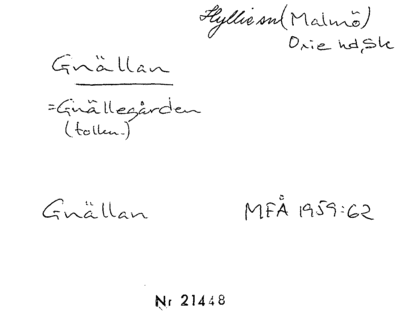 Hyllie sn (Malmö)
Oxie hd, Sk
Gnällan
=Gnällegården
(tolkn.)
Gnällan MFÅ 1959:62
Nr 21448